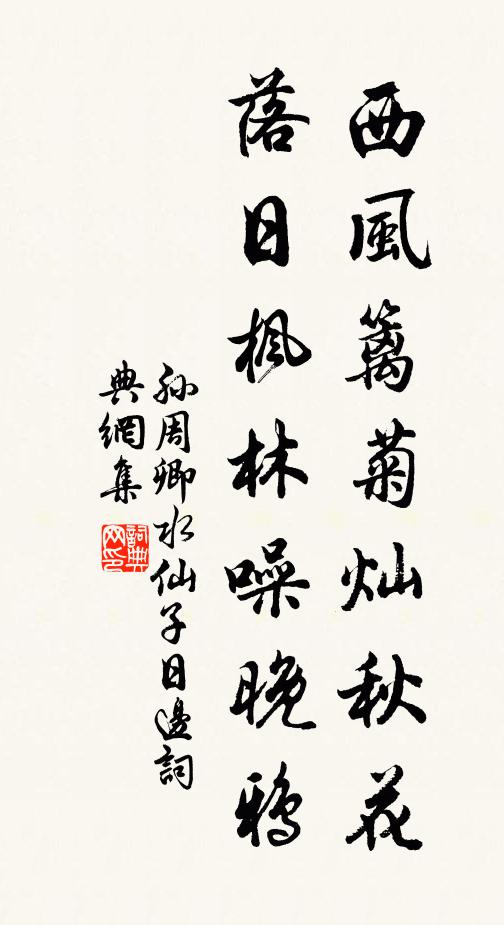 西風籬菊灿秋花
落日楓林噪晚鴉
孙周卿水仙子日邊詞
典網集
詞典网印